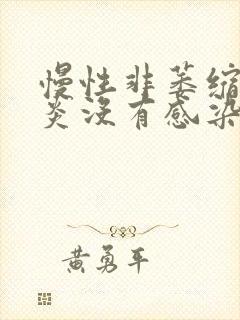 慢性非萎缩
炎没有感染
黄勇平